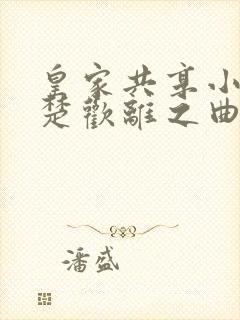 皇家共享小
楚歡離之曲
潘盛